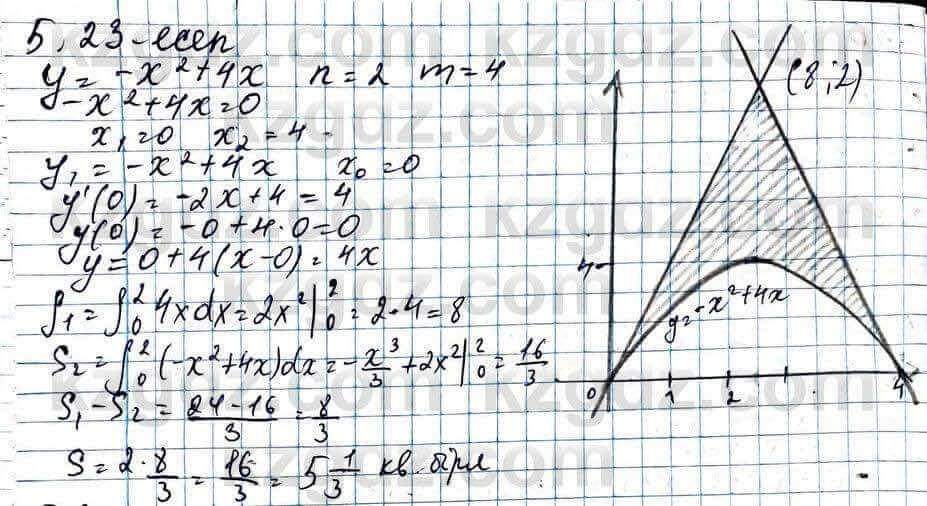 5.23-есеп
y = -x² + 4x   n = 2   m = 4
-x² + 4x = 0
x₁ = 0   x₂ = 4
y₁ = -x² + 4x   x₀ = 0
y'(0) = -2x + 4 = 4
y(0) = -0 + 4·0 = 0
y = 0 + 4(x - 0) = 4x
S₁ = ∫₀² 4x dx = 2x² |₀² = 2·4 = 8
S₂ = ∫₀² (-x² + 4x) dx = -x³/3 + 2x² |₀² = 16/3
S₁ - S₂ = (24 - 16)/3 = 8/3
S = 2·8/3 = 16/3 = 5 1/3 кв. бірл
(8;2)
4
y = -x² + 4x
0 1 2 4
kzgdz.com